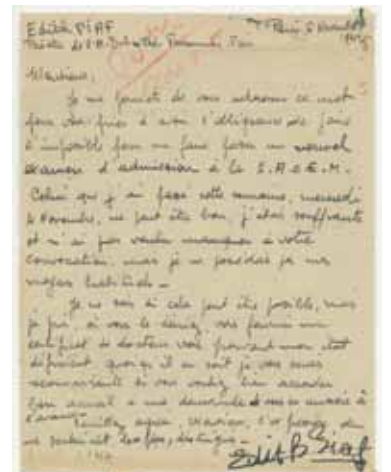 Edith PIAF
Paris
Monsieur,
Je me permets de vous adresser ce mot
pour vous prier d'avoir l'obligeance de faire
l'impossible pour me faire passer un nouvel
examen d'admission à la S.A.C.E.M.
Celui que j'ai passé cette semaine, mercredi
4 Novembre, ne peut être bon, j'étais souffrante
et n'ai pas voulu manquer à votre
convocation, mais je ne possédais pas mes
moyens habituels.
Je ne sais si cela peut être possible, mais
je puis, si vous le désirez, vous fournir un
certificat de docteur vous prouvant mon état
déficient quoi qu'il en soit je vous serais
reconnaissante si vous voulez bien accorder
bon accueil à ma demande et vous en remercie à
l'avance.
Veuillez agréer, Monsieur, l'
mes sentiments distingués.
Edith Piaf